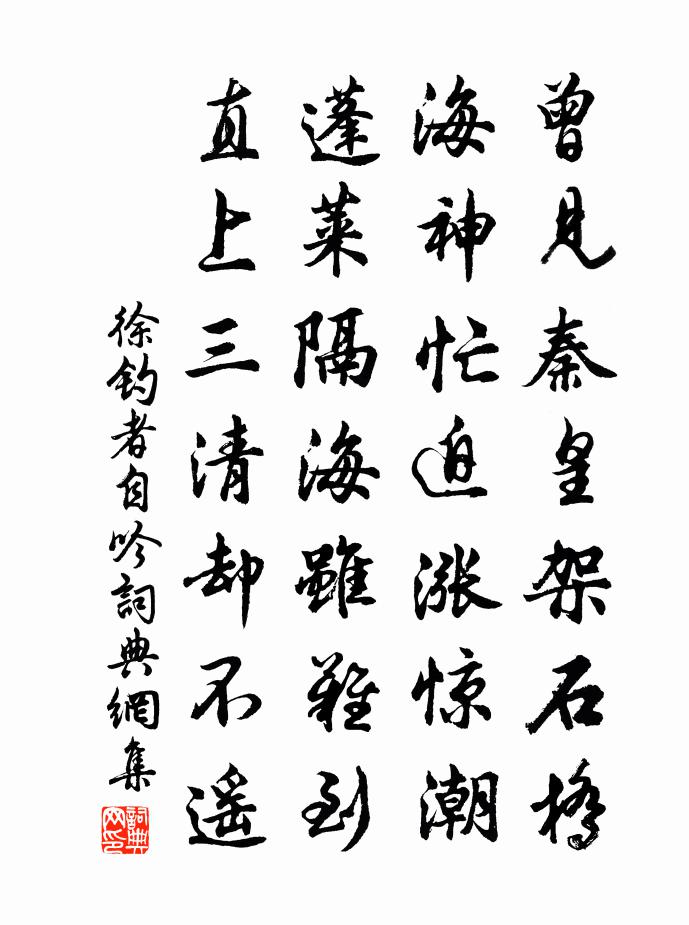 曾見秦皇架石橋
海神忙迫漲惊潮
蓬萊隔海雖難到
直上三清却不遥
徐钓者自吟詞典網集
詞典网印